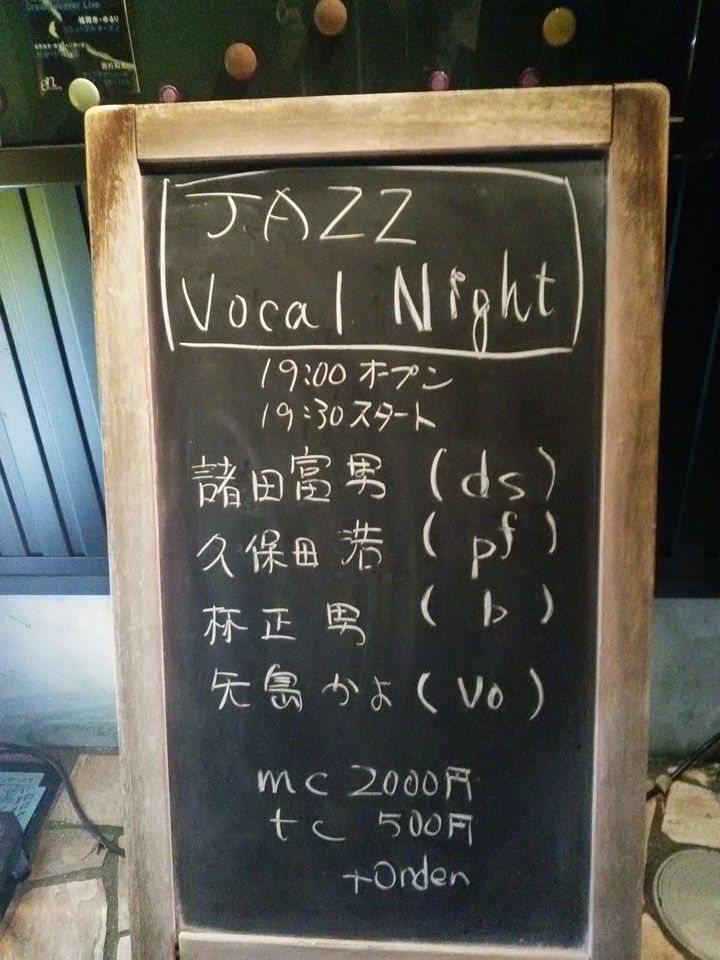 Dreamweaver Live
JAZZ
Vocal Night
19:00 オープン
19:30 スタート
諸田富男 (ds)
久保田 浩 (pf)
林正男 (b)
矢島かよ (vo)
mc 2000円
tc 500円
+Orden